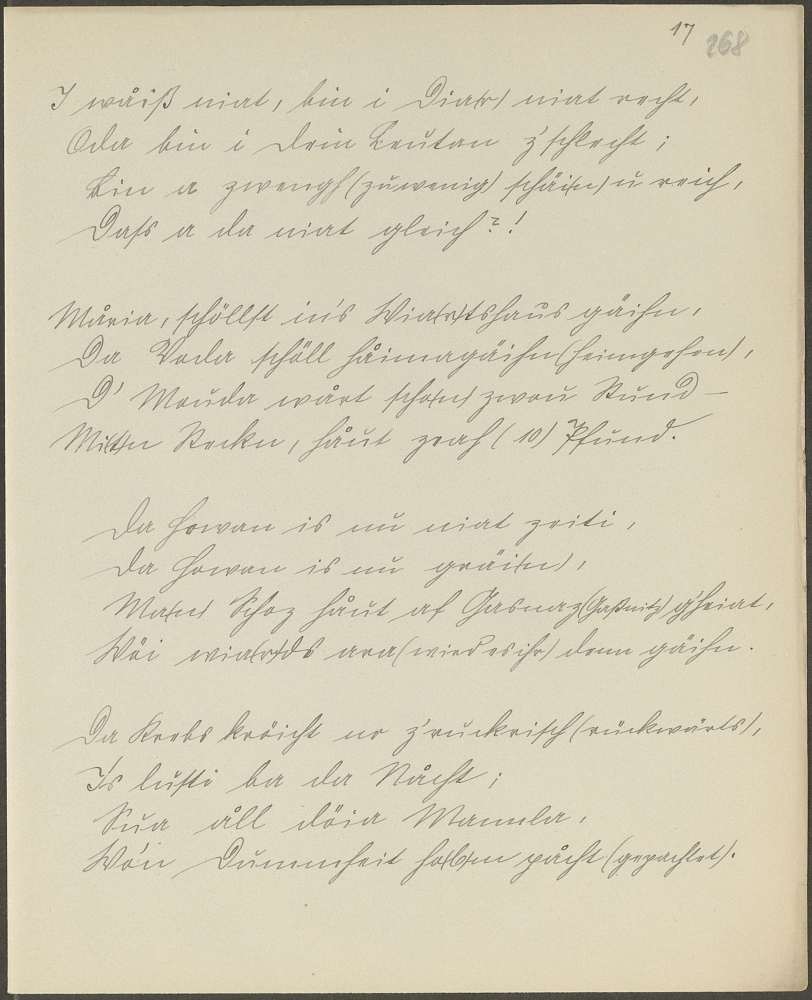 17
268
I wåiß niat, bin i Dia(r) niat recht,
Oda bin i Dein Leutan z'schlecht;
Bin a zwengh (zuwenig) schäi(n) u reich,
Dass a da niat gleich?!
Måria, schöllst in's Wia(r)tshaus gäihn,
Da Voda schöll håimagäihn (heimgehen),
D' Mouda wårt scho(n) zwou Stund –
Mi(t)n Steckn, håut zeah (10) Pfund.
Da Howan is nu niat zeiti,
Da Howan is nu gräi(n),
Ma(n) Schoz håut af Gasnaz (Gaßnitz) g'heiat,
Wöi wia(r)ds ara (wird es ihr) denn gäihn.
Da Krebs kröicht no z'ruckrisch (rückwärts),
Is lusti ba da Nåcht;
Sua åll döia Mannla,
Wo'n Dummheit ho(b)m påcht (gepachtet).